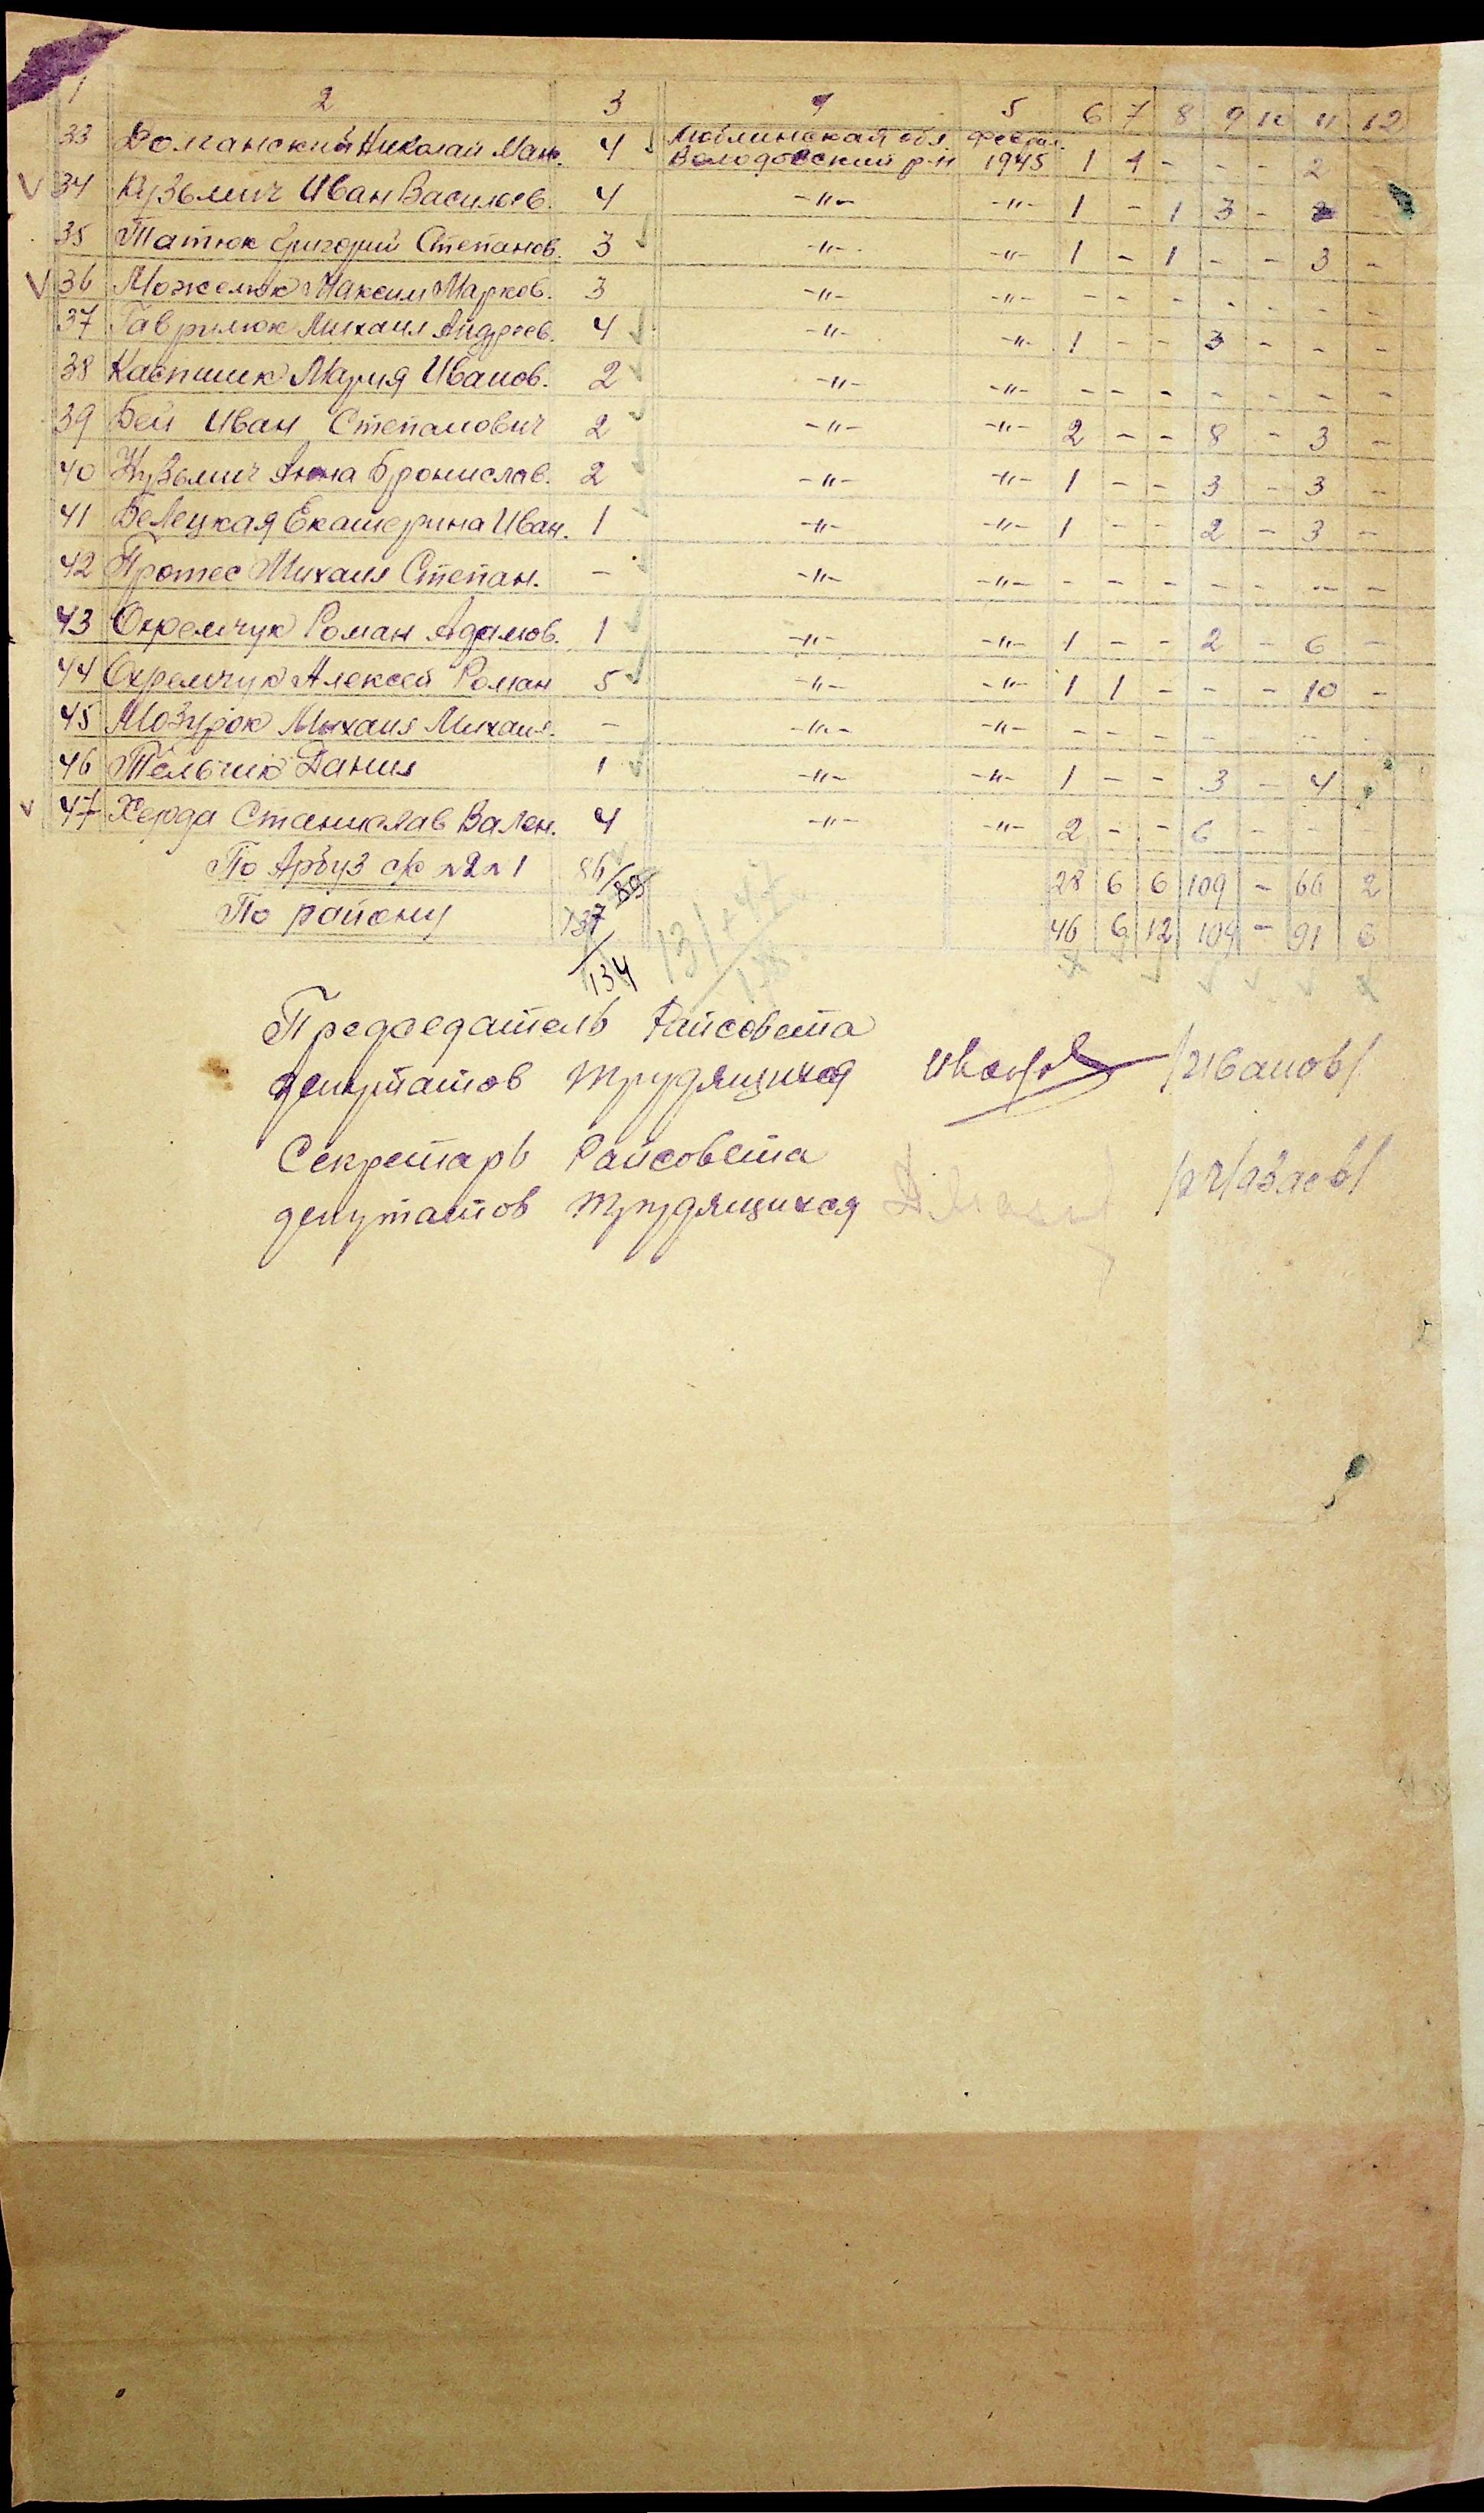 1 2 3 4 5 6 7 8 9 10 11 12
33 Долганский Николай Мак. 4 Люблинская обл. Володовский р-н феврал. 1945 1 1 - - - 2
34 Кузьмич Иван Васильев. 4 -"- -"- 1 - 1 3 - -
35 Татюк Григорий Степанов. 3 -"- -"- 1 - 1 - - 3 -
36 Можелюк Максим Марков. 3 -"- -"- - - - - - - -
37 Гаврилюк Михаил Андреев. 4 -"- -"- 1 - - 3 - - -
38 Каспшик Мария Иванов. 2 -"- -"- - - - - - - -
39 Бей Иван Степанович 2 -"- -"- 2 - - 8 - 3 -
40 Кузьмич Анна Бронислав. 2 -"- -"- 1 - - 3 - 3 -
41 Белецкая Екатерина Иван. 1 -"- -"- 1 - - 2 - 3 -
42 Протес Михаил Степан. - -"- -"- - - - - - - -
43 Охремчук Роман Адамов. 1 -"- -"- 1 - - 2 - 6 -
44 Охремчук Алексей Роман 5 -"- -"- 1 1 - - - 10 -
45 Мозурок Михаил Михаил. - -"- -"- - - - - - - -
46 Тельчик Данил 1 -"- -"- 1 - - 3 - 4
47 Херда Станислав Вален. 4 -"- -"- 2 - - 6 - - -
По Арбуз с/с №2 №1 86/89 28 6 6 109 - 66 2
По району 137/134 131+47/178 46 6 12 109 - 91 6
Председатель Райсовета
депутатов трудящихся /Иванов/
Секретарь Райсовета
депутатов трудящихся